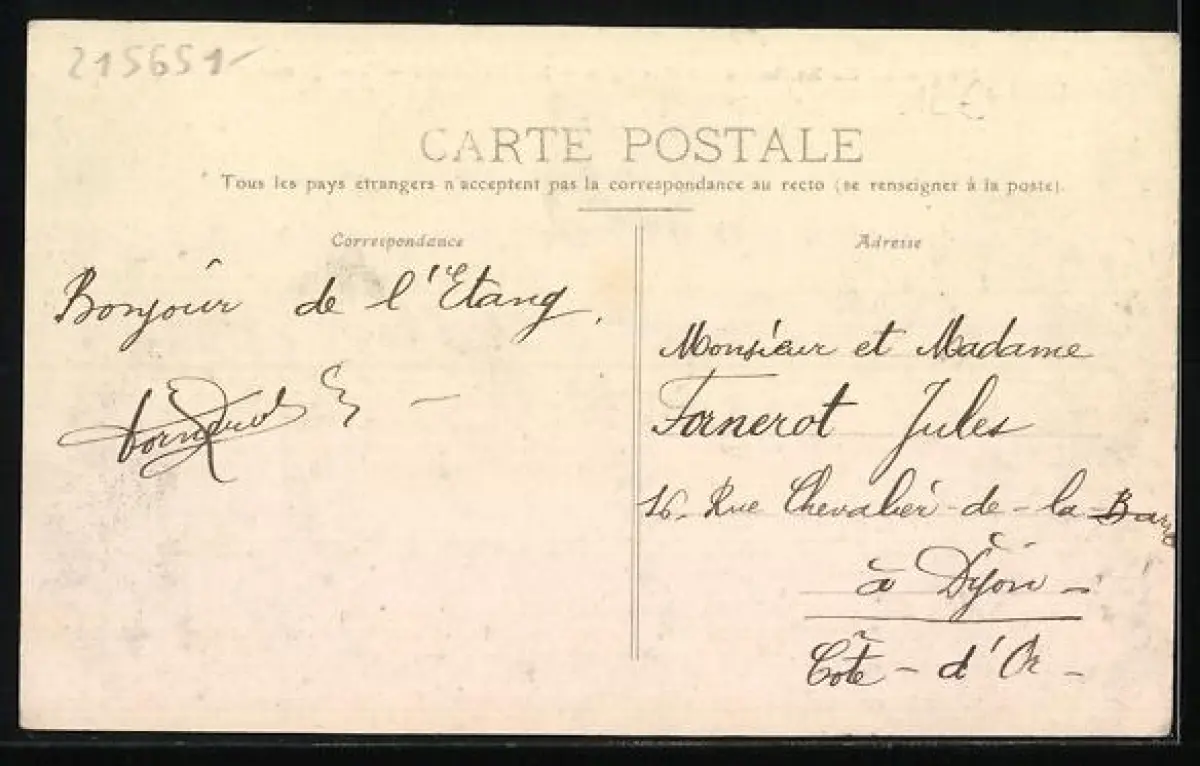 215651
CARTE POSTALE
Tous les pays etrangers n'acceptent pas la correspondance au recto (se renseigner à la poste).
Correspondance
Adresse
Bonjour de l'Etang.
Monsieur et Madame
Fornerot Jules
16. Rue Chevalier-de-la Barre
à Dijon -
Côte - d'Or -